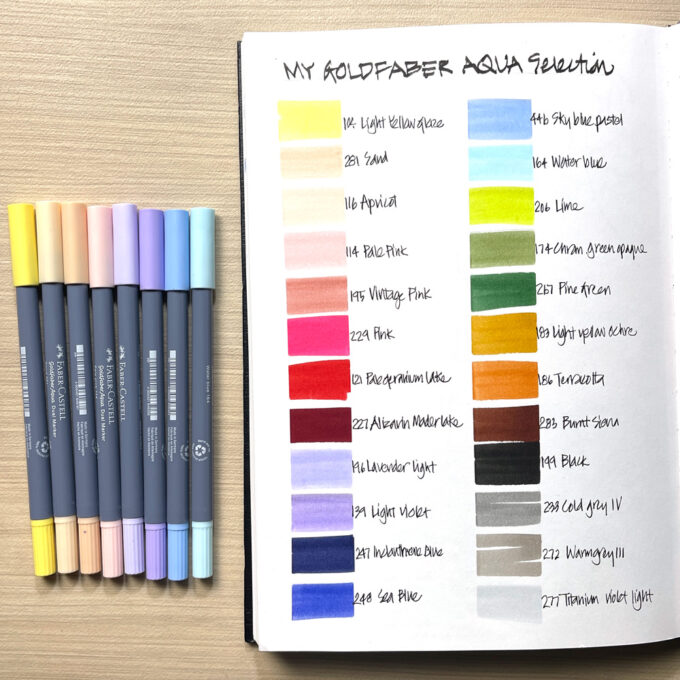 MY GOLDFABER AQUA Selection
104 Light Yellow glaze
281 Sand
116 Apricot
114 Pale Pink
195 Vintage Pink
229 Pink
121 Pale geranium lake
227 Alizarin Mader lake
196 Lavender light
139 Light violet
247 Indanthrene Blue
248 Sea Blue
446 Sky blue pastel
164 Water blue
206 Lime
174 Chrom green opaque
267 Pine green
183 Light yellow ochre
186 Terracotta
283 Burnt Siena
199 Black
233 Cold grey IV
272 Warmgrey III
277 Titanium violet light
FABER-CASTELL
Goldfaber Aqua Dual Marker
FABER-CASTELL
Goldfaber Aqua Dual Marker
Water blue 164